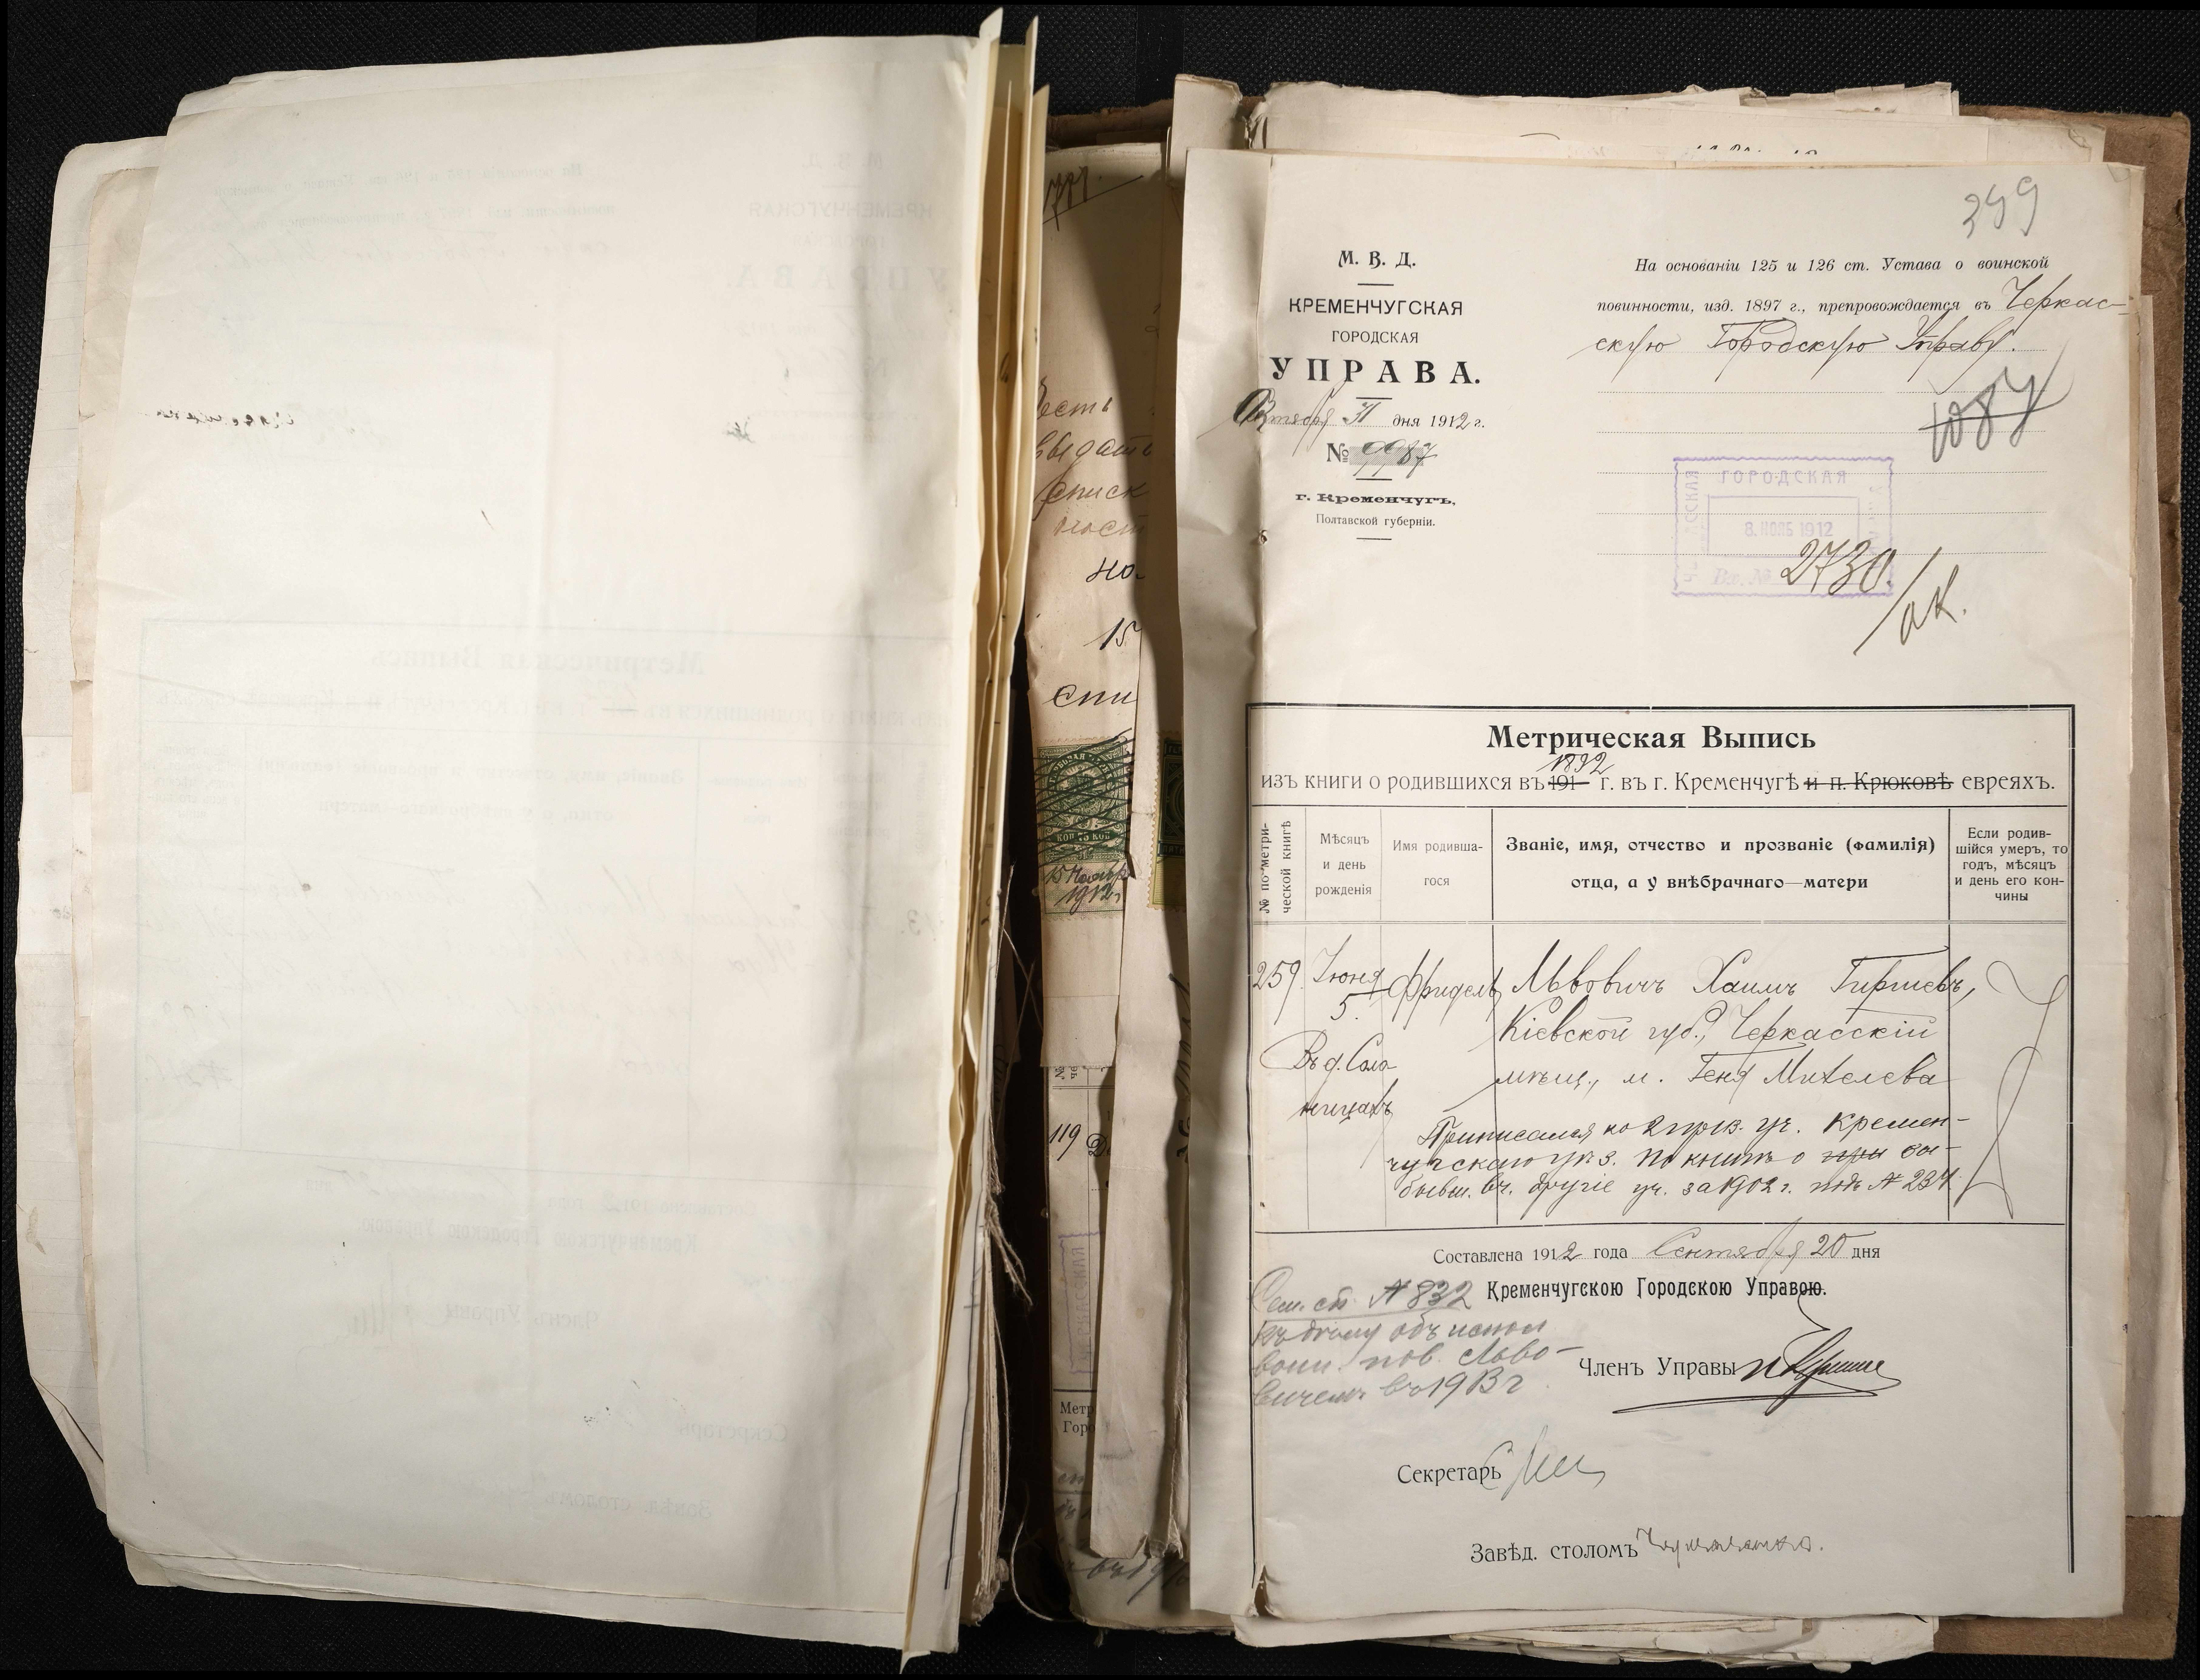 399
М. В. Д.
КРЕМЕНЧУГСКАЯ
ГОРОДСКАЯ
УПРАВА.
Октября 31 дня 1912 г.
№ 9987
г. Кременчугъ,
Полтавской губерніи.
На основаніи 125 и 126 ст. Устава о воинской
повинности, изд. 1897 г., препровождается въ Черкас-
скую Городскую Управу.
1087
ГОРОДСКАЯ
8. НОЯБ 1912
Вх. №
2730.
/ак.
Метрическая Выпись
1892
изъ книги о родившихся въ 191 г. въ г. Кременчугѣ и п. Крюковѣ евреяхъ.
№ по метри-
ческой книгѣ
Мѣсяцъ
и день
рожденія
Имя родивша-
гося
Званіе, имя, отчество и прозваніе (фамилія)
отца, а у внѣбрачнаго—матери
Если родив-
шійся умеръ, то
годъ, мѣсяцъ
и день его кон-
чины
259. Іюня Фридель Львовичъ Хаимъ Гиршевъ,
5.
Кіевской губ., Черкасскій
Въ д. Сало
мѣщ., м. Геня Михелева
ницахъ
Приписался ко 2 приз. уч. Кремен-
чугскаго уѣз. по книгѣ о при вы-
бывш. въ другіе уч. за 1902 г. подъ № 234
Составлена 1912 года Сентября 20 дня
Кременчугскою Городскою Управою.
Сем. сп. № 832
Къ дѣлу объ испол
воин. пов. Льво-
вичемъ въ 1913 г
Членъ Управы
Секретарь
Завѣд. столомъ
есть
списк
но.
15
спи
КОП 75 КОП
15 Ноября
1912 г.
119
Метр
Горо